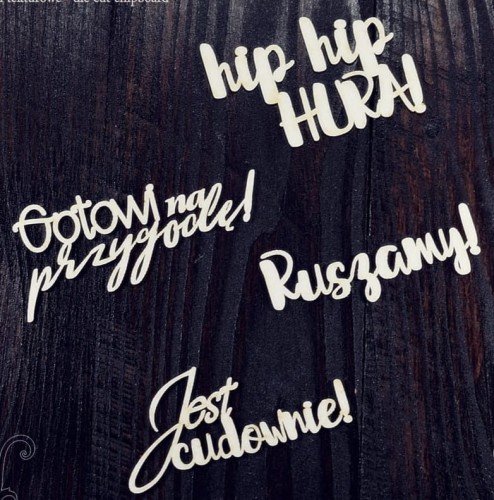 die cut chipboard
hip hip
HURA!
Gotowi na
przygodę!
Ruszamy!
Jest
cudownie!